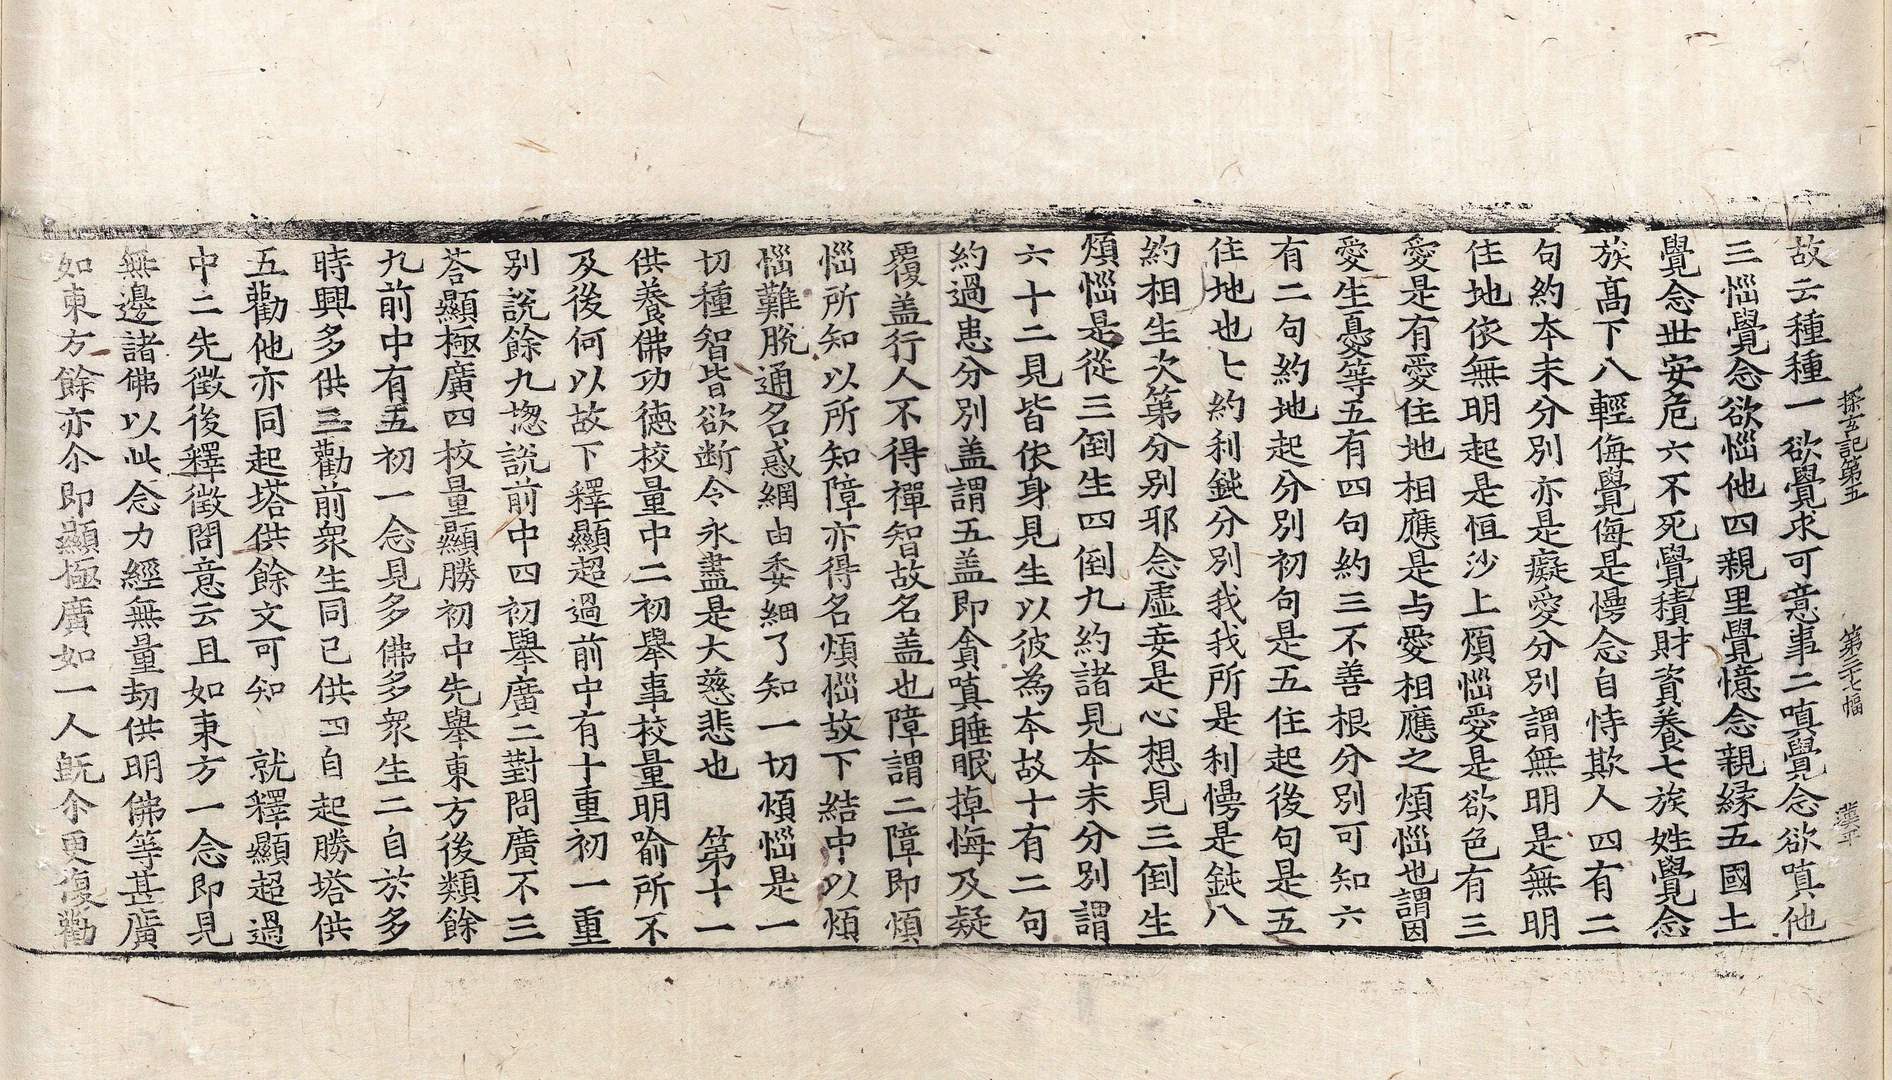 探玄記第五 第二十七幅 漢平
故云種種一欲覺求可意事二嗔覺念欲嗔他
三惱覺念欲惱他四親里覺憶念親緣五國土
覺念世安危六不死覺積財資養七族姓覺念
族髙下八輕侮覺侮是慢念自恃欺人四有二
句約本末分別亦是癡愛分別謂無明是無明
住地依無明起是恒沙上煩惱愛是欲色有三
愛是有愛住地相應是与愛相應之煩惱也謂因
愛生憂等五有四句約三不善根分別可知六
有二句約地起分別初句是五住起後句是五
住地也七約利鈍分別我我所是利慢是鈍八
約相生次第分別耶念虛妄是心想見三倒生
煩惱是從三倒生四倒九約諸見本末分別謂
六十二見皆依身見生以彼為本故十有二句
約過患分別盖謂五盖即貪嗔睡眠掉悔及疑
覆盖行人不得禪智故名盖也障謂二障即煩
惱所知以所知障亦得名煩惱故下結中以煩
惱難脫通名惑網由委細了知一切煩惱是一
切種智皆欲断令永盡是大慈悲也 第十一
供養佛功德校量中二初舉事校量明喻所不
及後何以故下釋顯超過前中有十重初一重
別說餘九揔說前中四初舉廣二對問廣不三
荅顯極廣四校量顯勝初中先舉東方後類餘
九前中有五初一念見多佛多衆生二自於多
時興多供三勸前衆生同已供四自起勝塔供
五勸他亦同起塔供餘文可知 就釋顯超過
中二先徵後釋徵問意云且如東方一念即見
無邊諸佛以此念力經無量劫供明佛等甚廣
如東方餘亦尒即顯極廣如一人旣尒更復勸